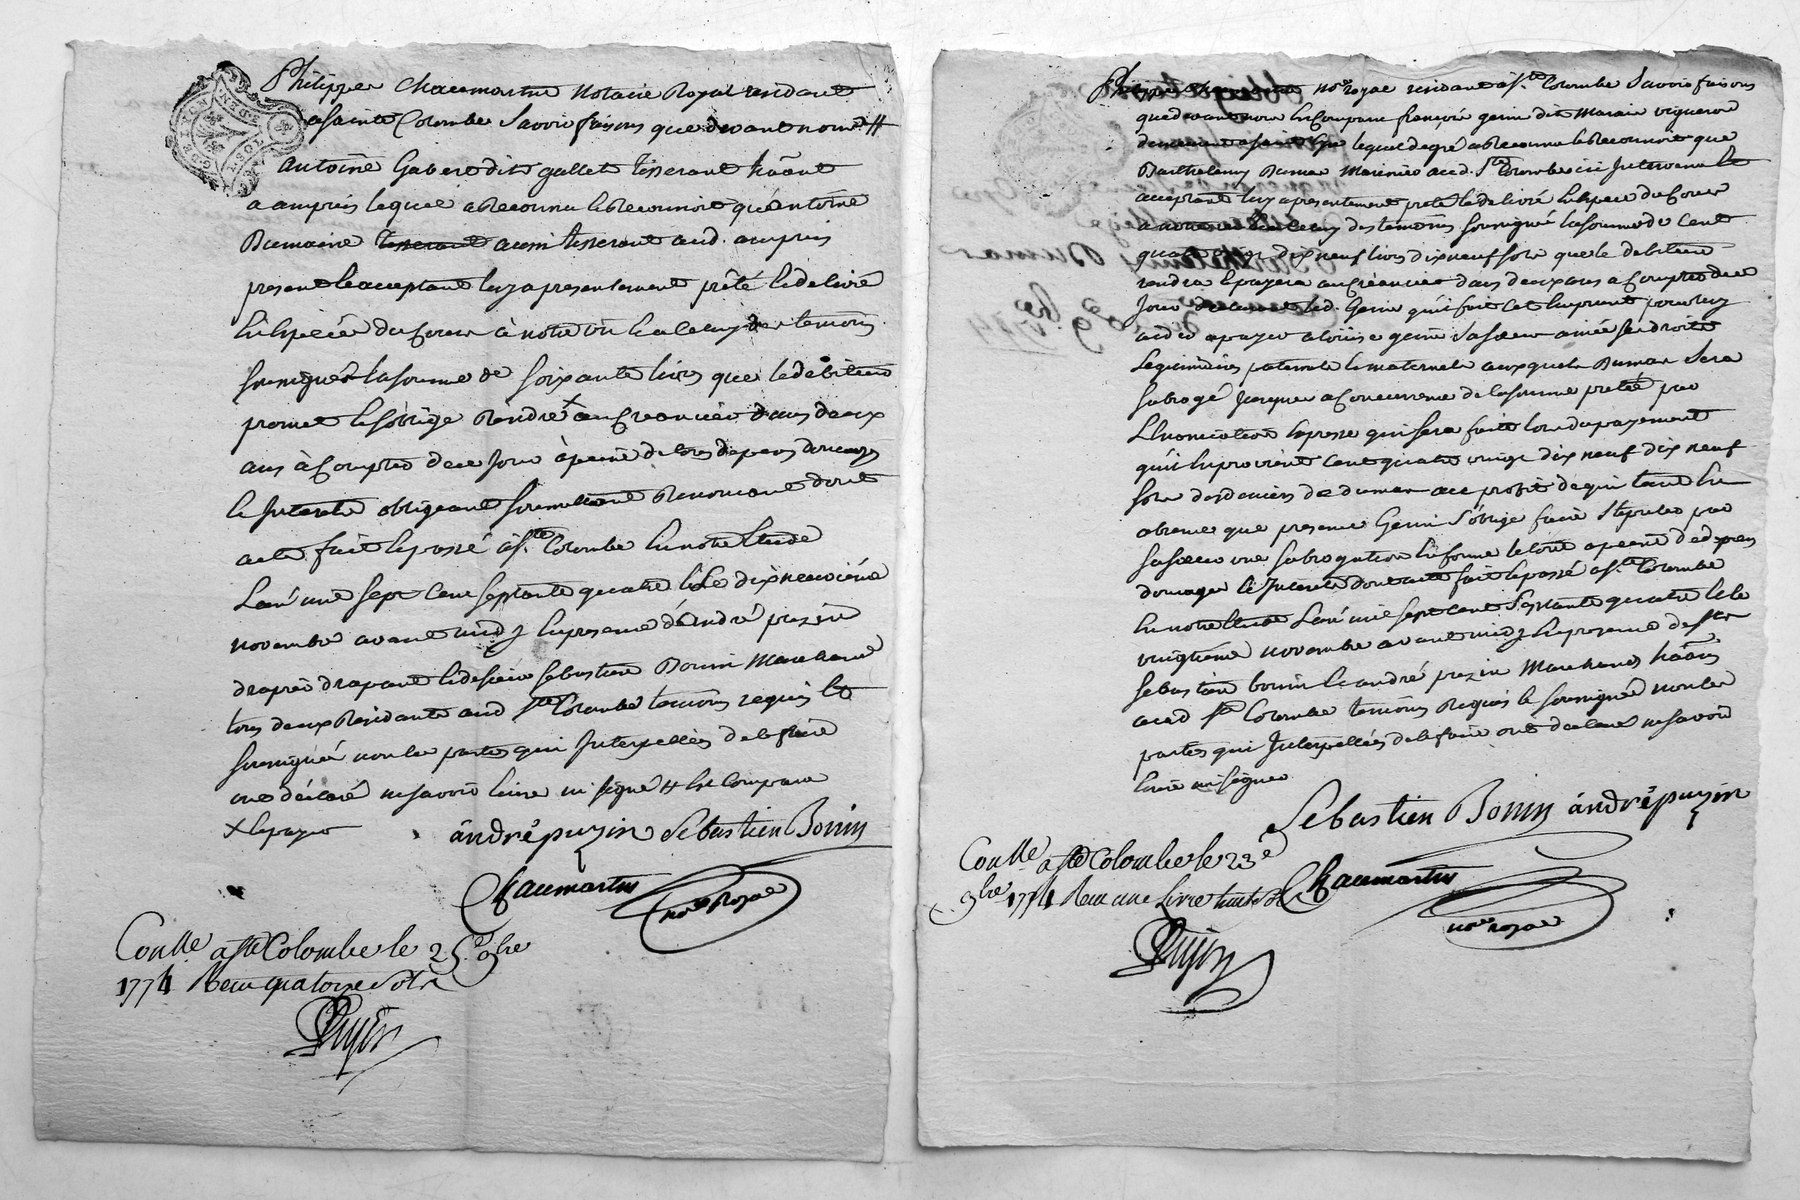 Philippe Chaumartin Notaire Royal residant
a sainte Colombe Savoir faisons que devant nous #
antoine Gabert dit gallet tisserant haant
a ampuis lequel a Reconnu & Reconnoit qu'antoine
Dumaine tisserant aussi tisserant aud. ampuis
present & acceptant luy a presentement prêté & delivré
En Espèce du Cour à notre vüe & a celle des temoins
soussignés la somme de soixante livres que le debiteur
promet & s'oblige Rendre x au Creancier dans deux
ans à Compter de ce Jour à peine de tous depens domages
& Interets obligeant soumettant Renoncant dont
acte fait & passé à Ste. Colombe En notre Etude
L'an mil sept cent septante quatre & le dixneuvième
novembre avant midy En presence d'André puzin
drapier drapant & de sieur Sebastien Bonin Marchand
tous deux Residants aud Ste Colombe temoins requis &
soussignés non les parties qui Interpellées de le faire
ont déclaré ne savoir Ecrire ni signer # Est Comparu
x & payer
andré puzin Sebastien Bonin
Chaumartin
nore Royal
Conlle a Ste Colombe le 25e 9bre
1774 Recu quatorze sols
Puzin
Philippe Chaumartin nore royal residant a Ste. Colombe Savoir faisons
que devant nous Est Comparu françois genin dit Marain vigneron
demeurant a lequel de gré a Reconnu & Reconnoit que
Barthelemy Dumas Marinier aud. Ste Colombe ici Intervenu &
acceptant luy a presentement preté & delivré En Espece du Cour
a notre vüe & a celle des temoins soussignés la somme de Cent
quatre vingt dix neuf livres dix neuf sols que le debiteur
rendra & payera au Creancier dans deux ans a Compter de ce
Jour declarant led. Genin qu'il fait cet Emprunt pour luy
aider a payer a loüise genin sa soeur ainée ses droits
Legitimaires paternels & maternels auxquels Dumas sera
subrogé Jusques a Concurrence de la somme pretée par
L'Enonciation Expresse qui sera faite lors du payement
qu'il En provient Cent quatre vingt dix neuf dix neuf
sols des deniers de dumas au profit de qui tant En
absence que presence Genin s'oblige faire stipuler par
sa soeur une subrogation En forme le tout a peine de depens
domages & Interets dont acte fait & passé a Ste. Colombe
En notre Etude L'an mil sept cent septante quatre & le
vingtième novembre avant midy En presence de sr
Sebastien bonin & andré puzin Marchands haans
aud Ste Colombe temoins Requis & soussignés non les
parties qui Interpellées de le faire ont declaré ne savoir
Ecrire ni signer
Sebastien Bonin andré puzin
Conlle a Ste Colombe le 23e
9bre 1774 Recu une Livre huit sols
Chaumartin
nore royal
Puzin